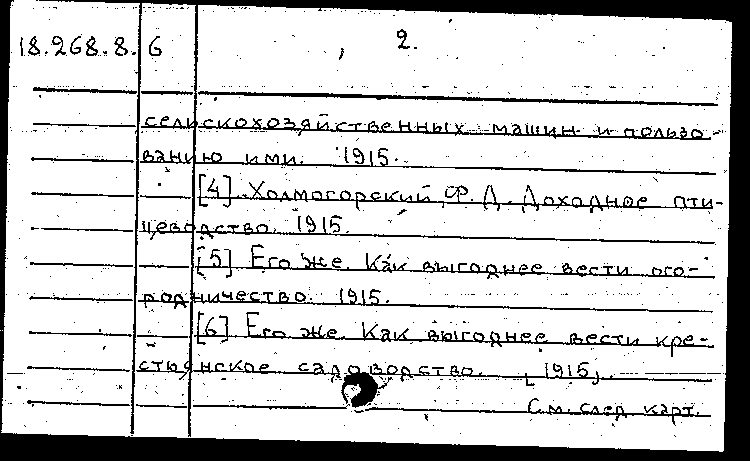 18.268.8.6 , 2.
сельскохозяйственных машин и пользо-
ванию ими. 1915.
[4] Холмогорский, Ф. Д. Доходное пти-
цеводство. 1915.
[5] Его же. Как выгоднее вести ого-
родничество. 1915.
[6] Его же. Как выгоднее вести кре-
стьянское садоводство. [1915].
См. след. карт.